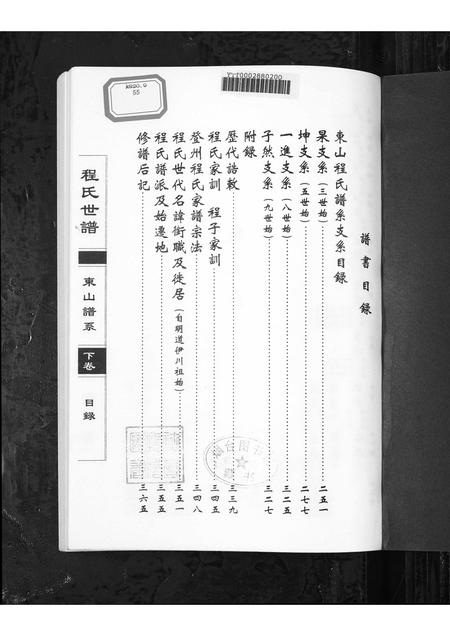 K820.9
55
Y210002880200
譜書目錄
東山程氏譜系支系目錄
杲支系（三世始）……二五一
坤支系（五世始）……二七七
一進支系（八世始）……三二五
子然支系（九世始）……三二七
附錄
歷代誥敕……三三九
程氏家訓 程子家訓……三四五
登州程氏家譜宗法……三四八
程氏世代名諱銜職及徙居（自明道伊川祖始）……三五一
程氏譜派及始遷地……三五五
修譜后記……三六五
程氏世譜
東山譜系
下卷
目錄